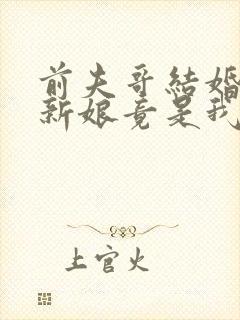 前夫哥結婚
新娘竟是我
上官火